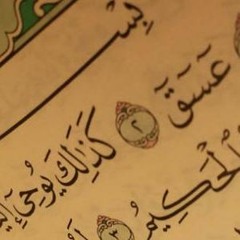 عٓسٓقٓ ٢ كَذَٰلِكَ يُوحِىٓ
ٱلْحَكِيمُ ٣